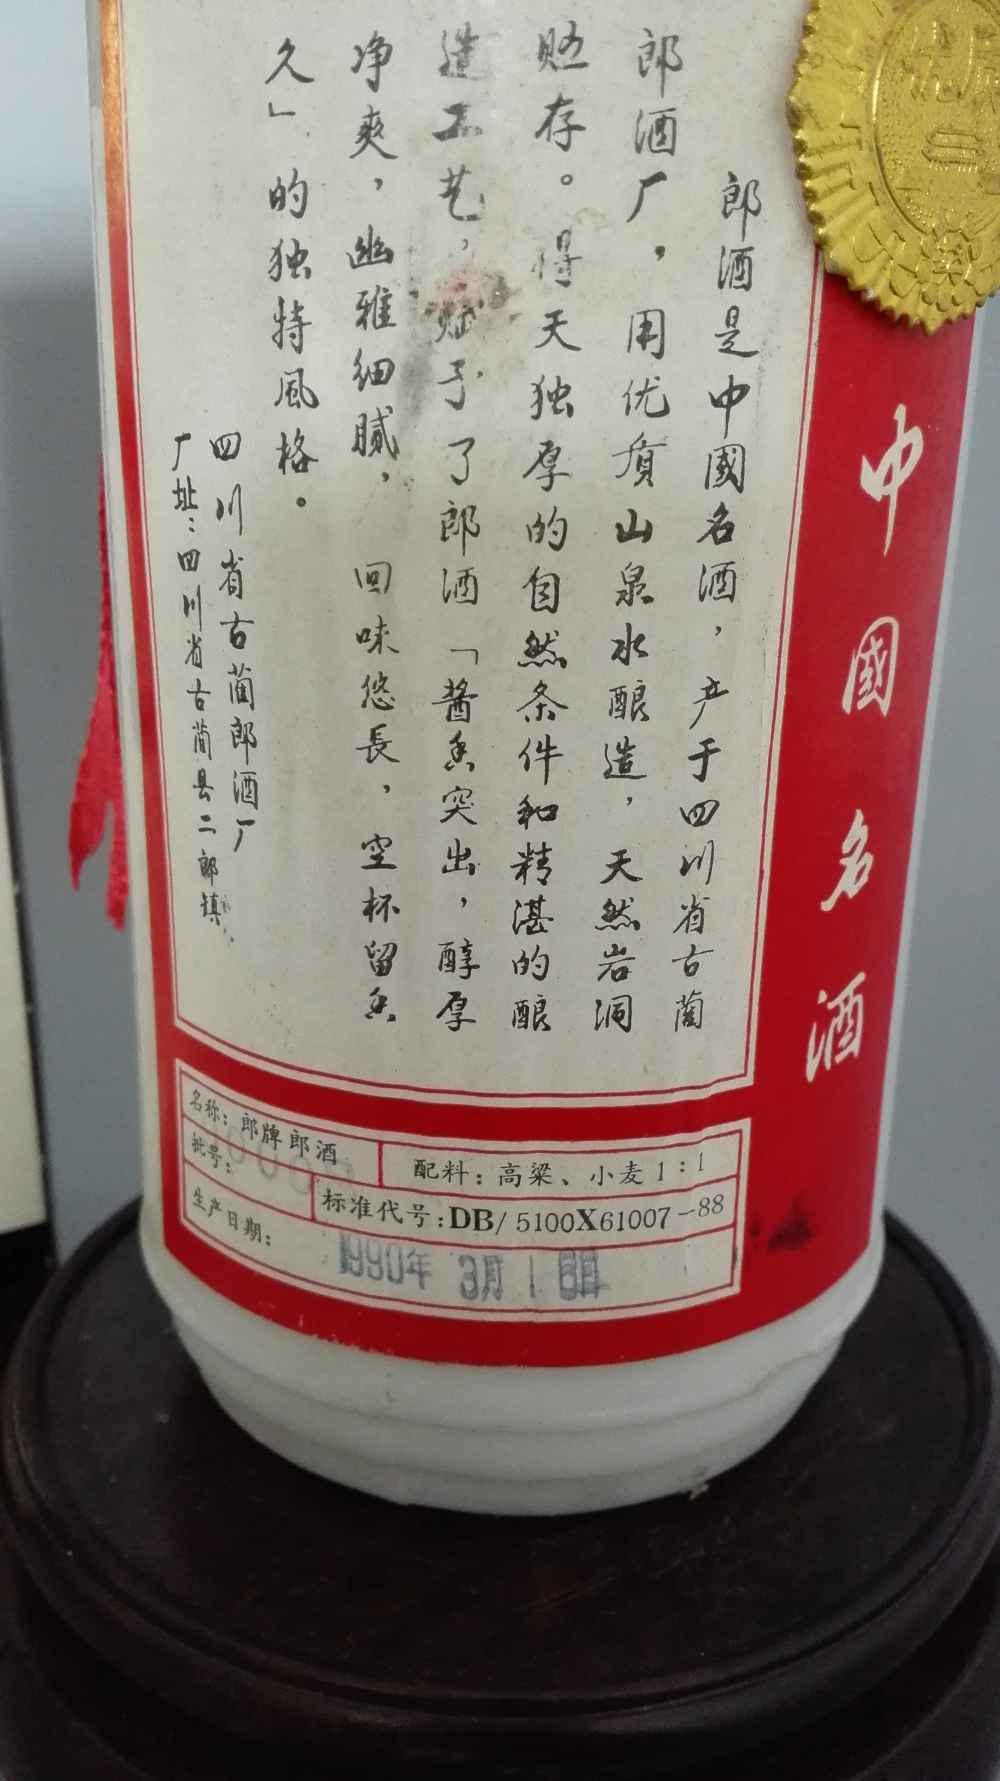 郎酒是中國名酒，产于四川省古蔺
郎酒厂，用优质山泉水酿造，天然岩洞
贮存。得天独厚的自然条件和精湛的酿
造工艺，赋予了郎酒「酱香突出，醇厚
净爽，幽雅细腻，回味悠長，空杯留香
久」的独特風格。
四川省古蔺郎酒厂
厂址：四川省古蔺县二郎镇
中國名酒
名称：郎牌郎酒
配料：高粱、小麦1：1
批号：
标准代号：DB/5100X61007-88
生产日期：1990年3月16日